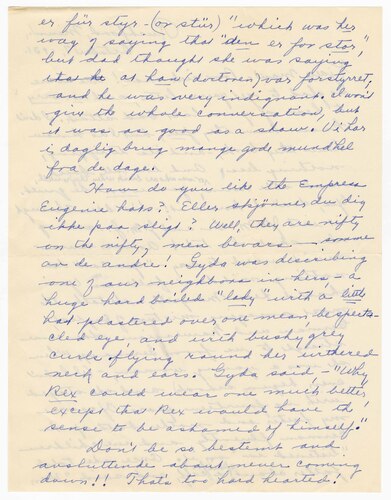 er für styr-(or stür) "which was her
way of saying that "den er for stor,"
but dad thought she was saying
that he at han (doctoren) var forstyrret,
and he was very indignant. I won't
give the whole conversation, but
it was as good as a show. Vi har
i daglig brug mange gode mundhel
fra de dage.
How do you like the Empress
Eugenie hats? Eller skjönner du dig
ikke paa sligt? Well, they are nifty
on the nifty, men bevars - somme
av de andre! Gyda was describing
one of our neighbors in hers - a
huge hard boiled "lady" with a little
hat plastered over one mean bespecta-
cled eye, and with bushy grey
curls flying round her withered
neck and ears. Gyda said - "Why
Rex could wear one much better
except that Rex would have the
sense to be ashamed of himself."
Don't be so bestemt and
avsluttende about never coming
down!! That's too hard hearted!